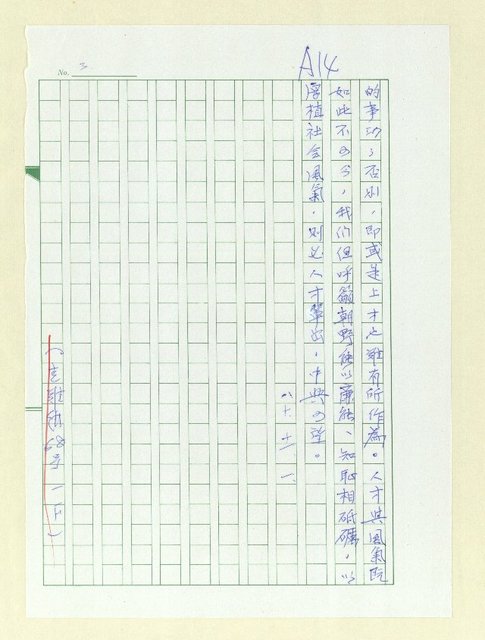 A14
No. 3
的事功；否則，即或是上才也難有所作為。人才與風氣既
如此不可分，我們但呼籲朝野能以廉能、知恥相砥礪，以
厚植社會風氣，則必人才輩出，中興可望。
八十、十一、一